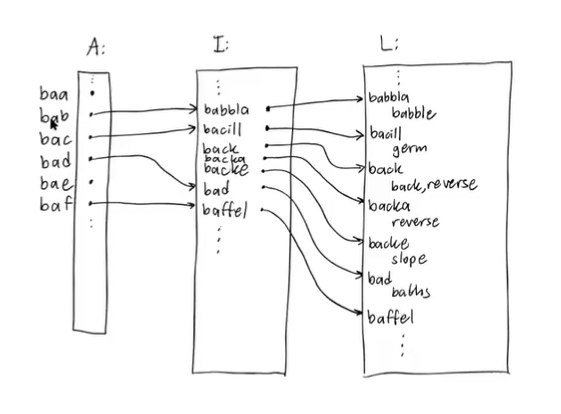 A:
baa
bab
bac
bad
bae
baf
I:
babbla
bacill
back
backa
backe
bad
baffel
L:
babbla
babble
bacill
germ
back
back, reverse
backa
reverse
backe
slope
bad
baths
baffel